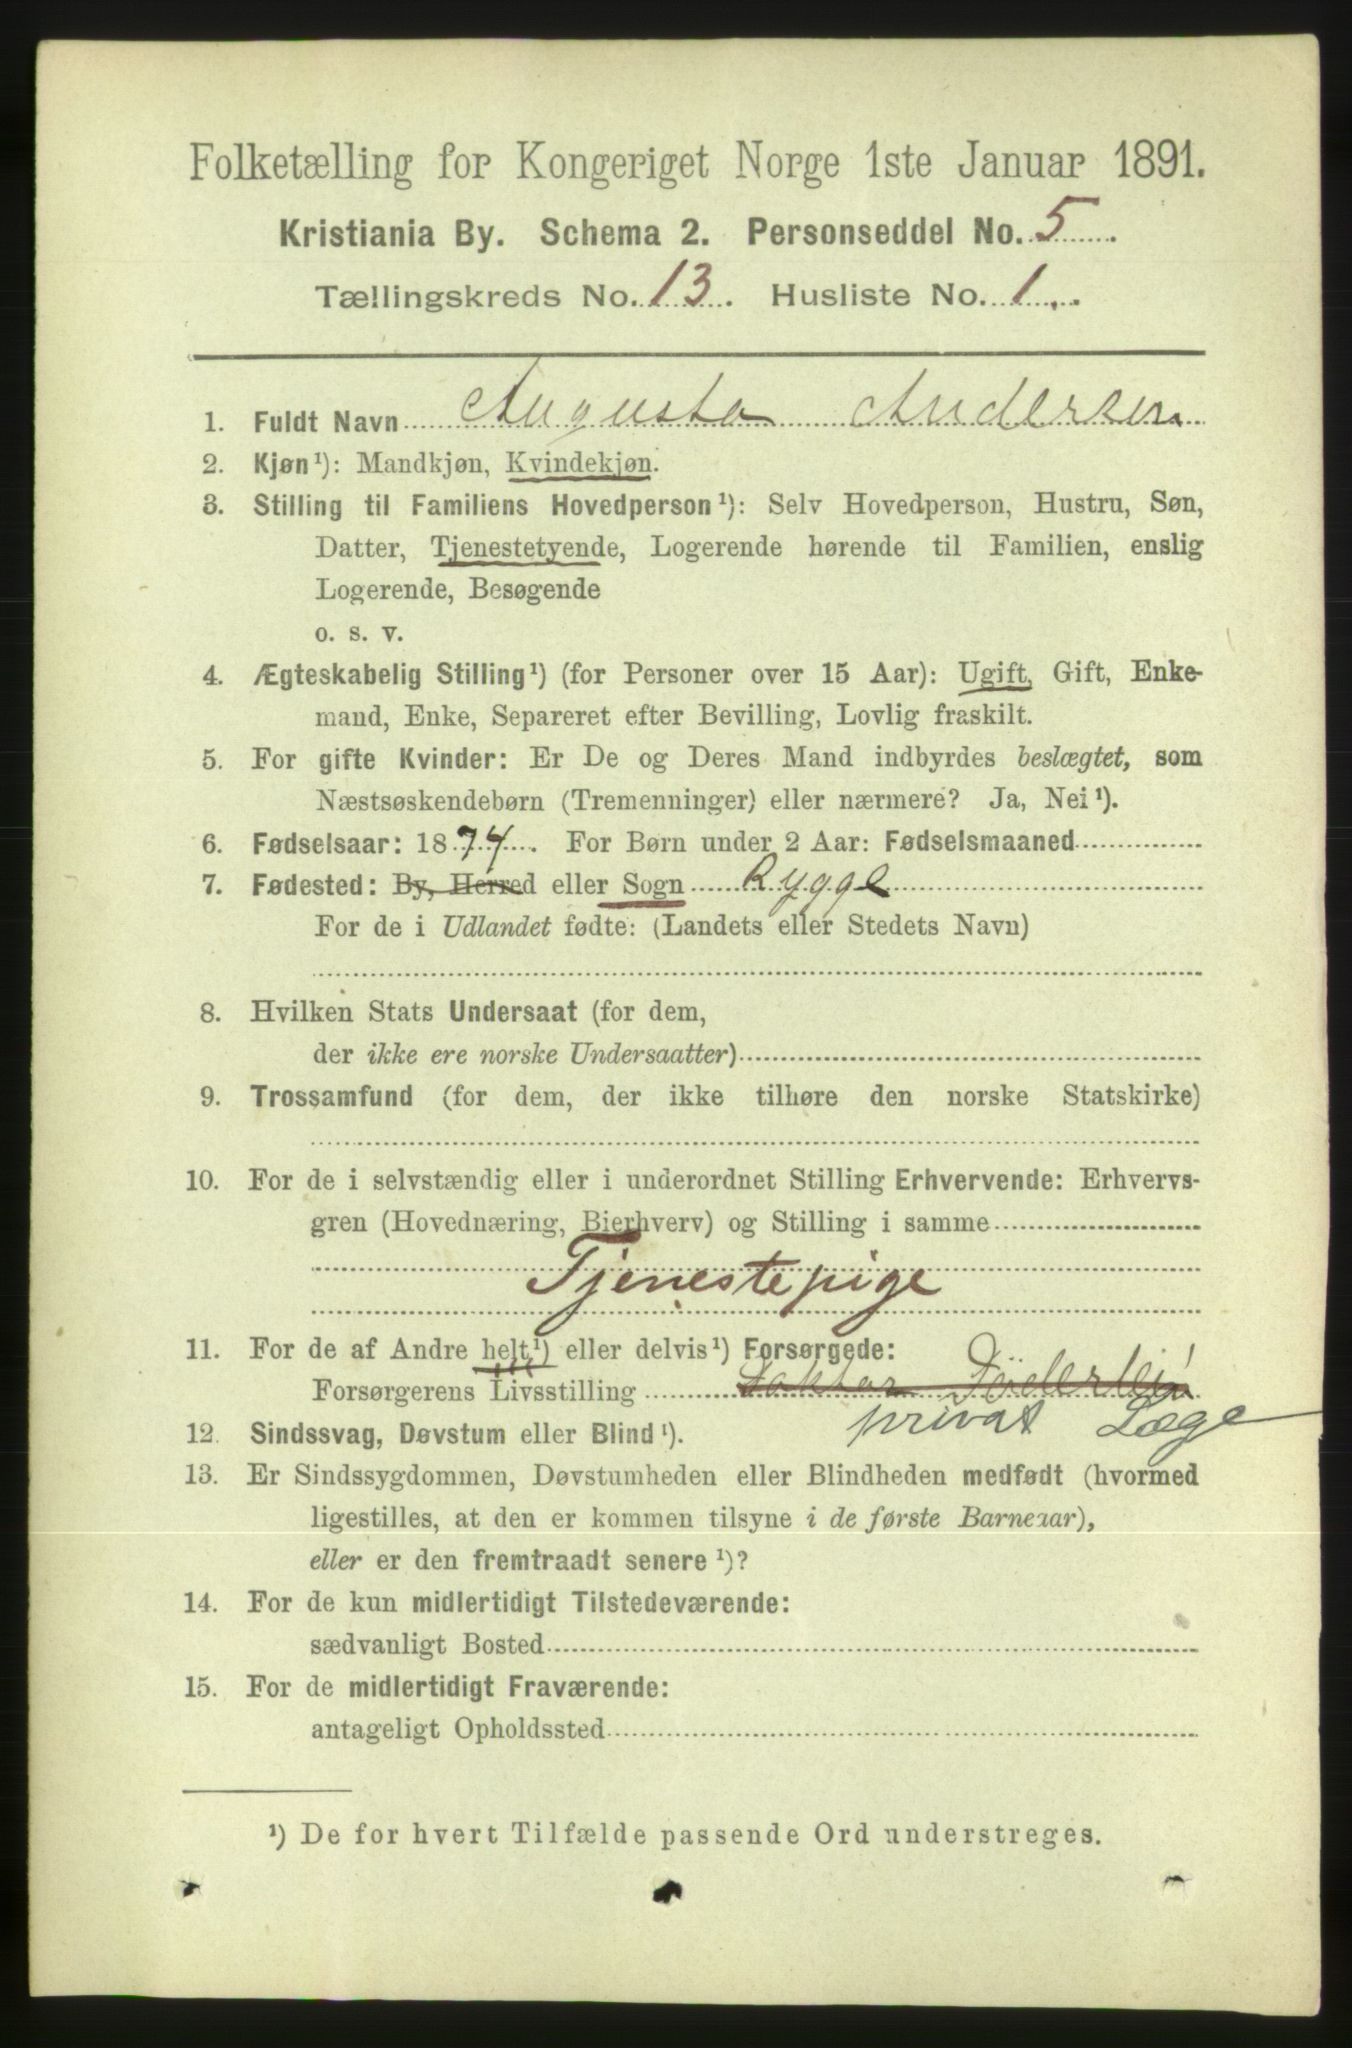 Folketælling for Kongeriget Norge 1ste Januar 1891.
Kristiania By. Schema 2. Personseddel No. 5
Tællingskreds No. 13. Husliste No. 1.
1. Fuldt Navn Augusta Andersen
2. Kjøn¹): Mandkjøn, Kvindekjøn.
3. Stilling til Familiens Hovedperson¹): Selv Hovedperson, Hustru, Søn,
Datter, Tjenestetyende, Logerende hørende til Familien, enslig
Logerende, Besøgende
o. s. v.
4. Ægteskabelig Stilling¹) (for Personer over 15 Aar): Ugift, Gift, Enke-
mand, Enke, Separeret efter Bevilling, Lovlig fraskilt.
5. For gifte Kvinder: Er De og Deres Mand indbyrdes beslægtet, som
Næstsøskendebørn (Tremenninger) eller nærmere? Ja, Nei¹).
6. Fødselsaar: 1874. For Børn under 2 Aar: Fødselsmaaned
7. Fødested: By, Herred eller Sogn Rygge
For de i Udlandet fødte: (Landets eller Stedets Navn)
8. Hvilken Stats Undersaat (for dem,
der ikke ere norske Undersaatter)
9. Trossamfund (for dem, der ikke tilhøre den norske Statskirke)
10. For de i selvstændig eller i underordnet Stilling Erhvervende: Erhvervs-
gren (Hovednæring, Bierhverv) og Stilling i samme
Tjenestepige
11. For de af Andre helt¹) eller delvis¹) Forsørgede:
Forsørgerens Livsstilling Doktor
privat Læge
12. Sindssvag, Døvstum eller Blind¹).
13. Er Sindssygdommen, Døvstumheden eller Blindheden medfødt (hvormed
ligestilles, at den er kommen tilsyne i de første Barneaar),
eller er den fremtraadt senere¹)?
14. For de kun midlertidigt Tilstedeværende:
sædvanligt Bosted
15. For de midlertidigt Fraværende:
antageligt Opholdssted
¹) De for hvert Tilfælde passende Ord understreges.